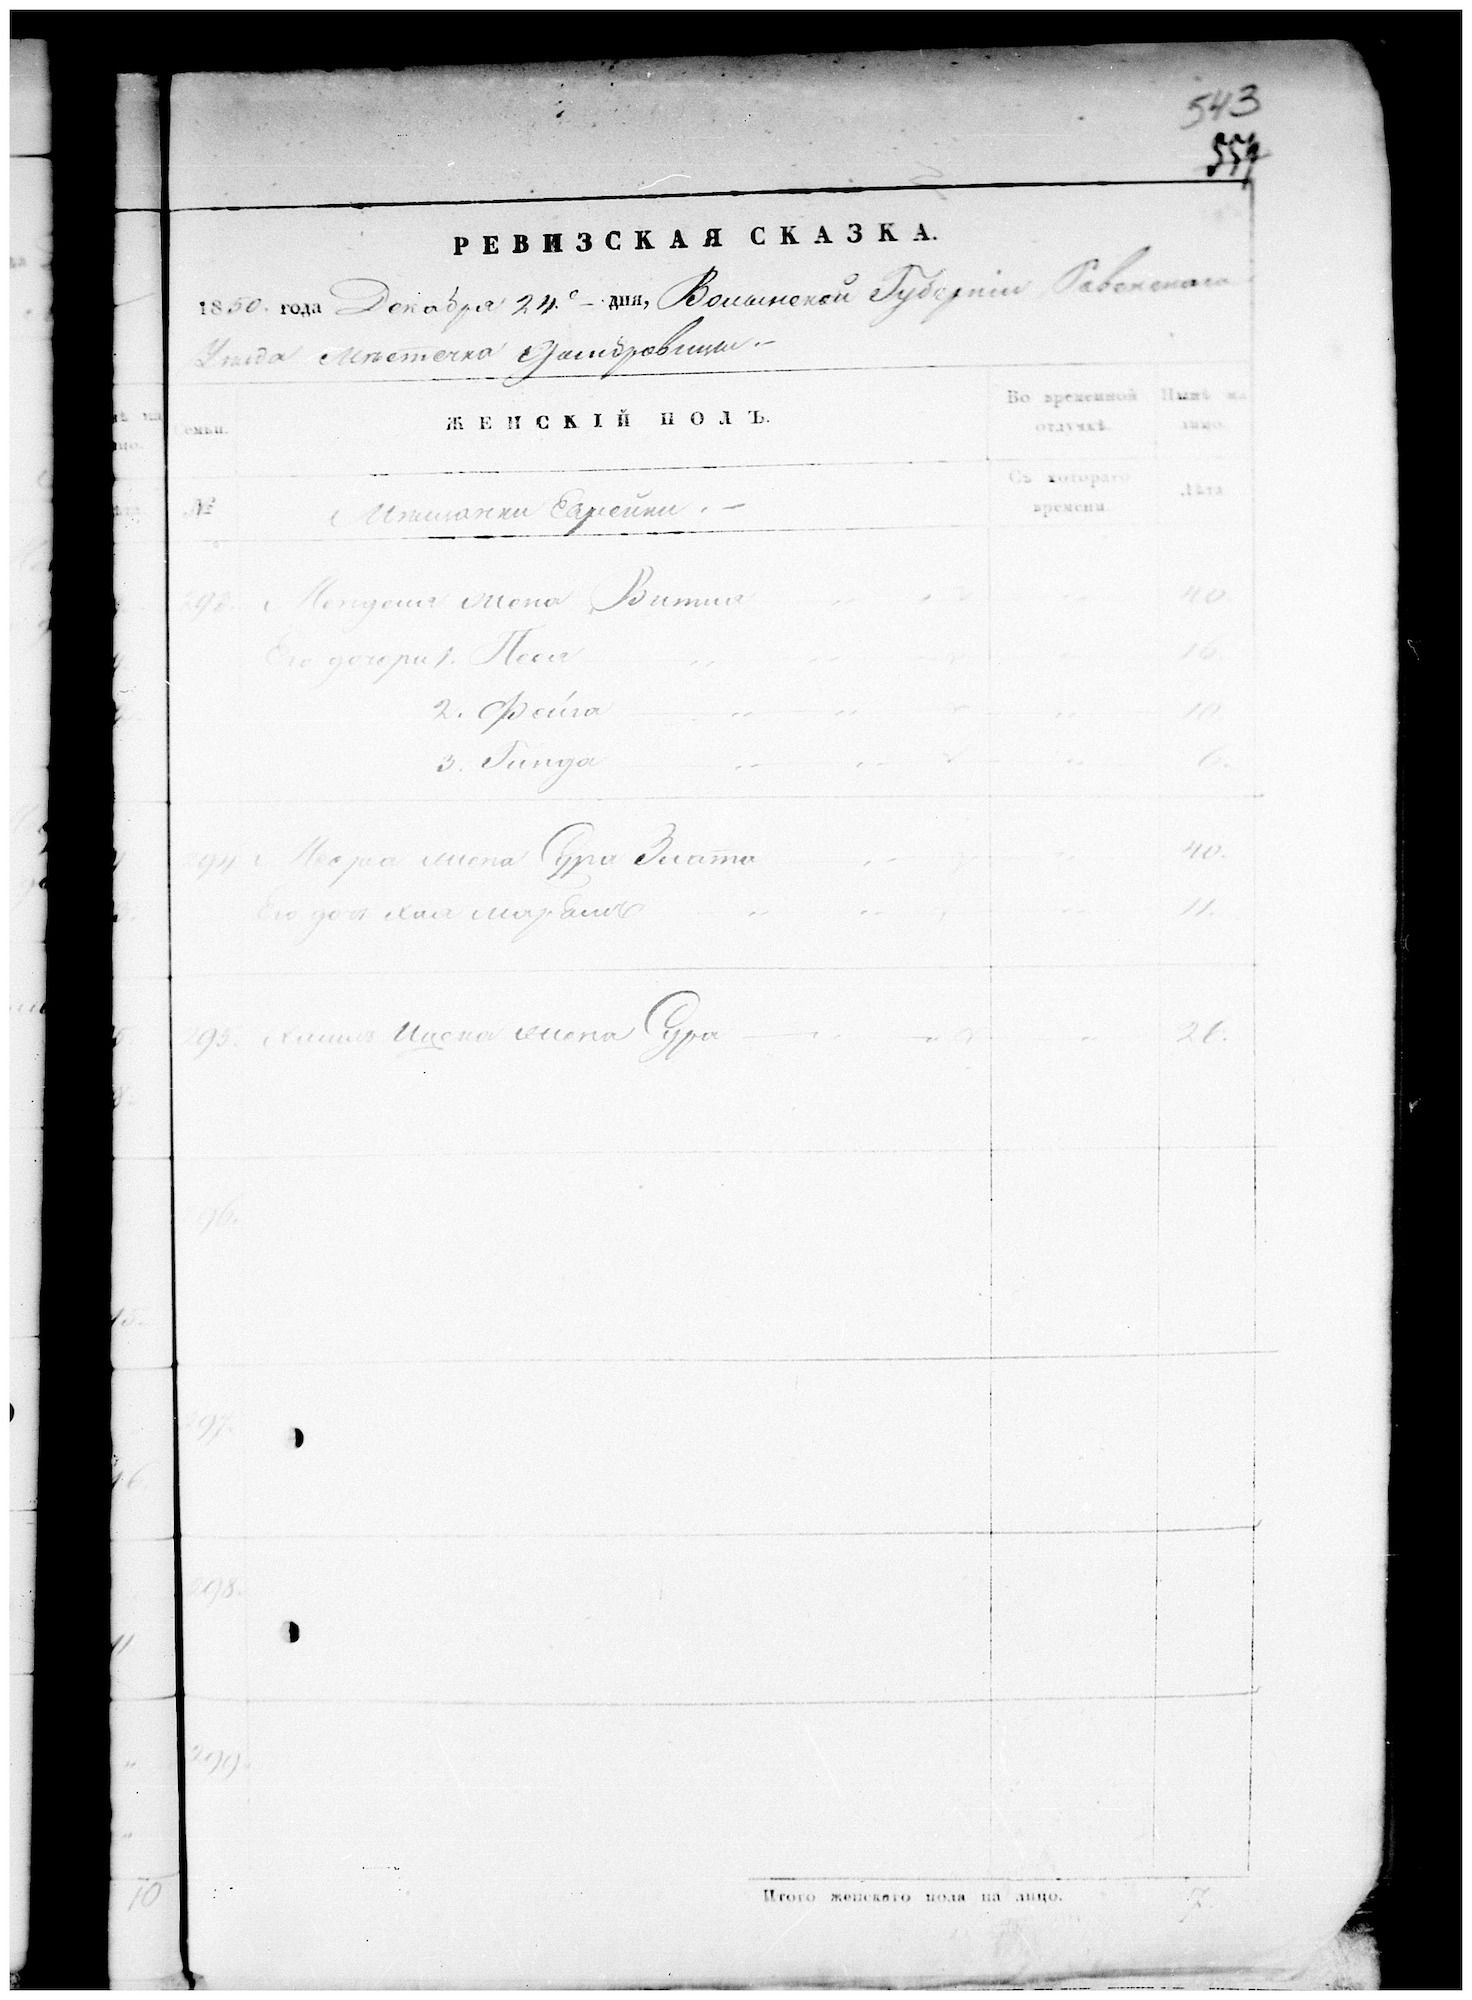 543
РЕВИЗСКАЯ СКАЗКА.
1850. года Декабря 24.го дня, Волынской Губерніи Ровенскаго
Уѣзда Мѣстечка Домбровицы.
Семьи.
ЖЕНСКІЙ ПОЛЪ.
Во временной отлучкѣ.
Нынѣ на лицо.
№
Мѣщанки Еврейки.
Съ котораго времени.
Лѣта
293. Менделя жена Витля 40.
Его дочери 1. Песя 16.
2. Фейга 10
3. Гинда 6.
294 жена Сура Злата 40.
Его дочь Хая 11.
295. Ицека жена Сура 26.
296.
297.
298.
299.
10
Итого женскаго пола на лицо. 7.